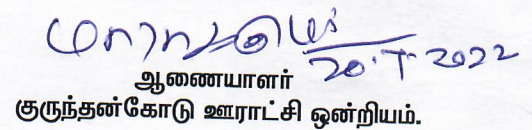 20.7.2022
ஆணையாளர்
குருந்தன்கோடு ஊராட்சி ஒன்றியம்.